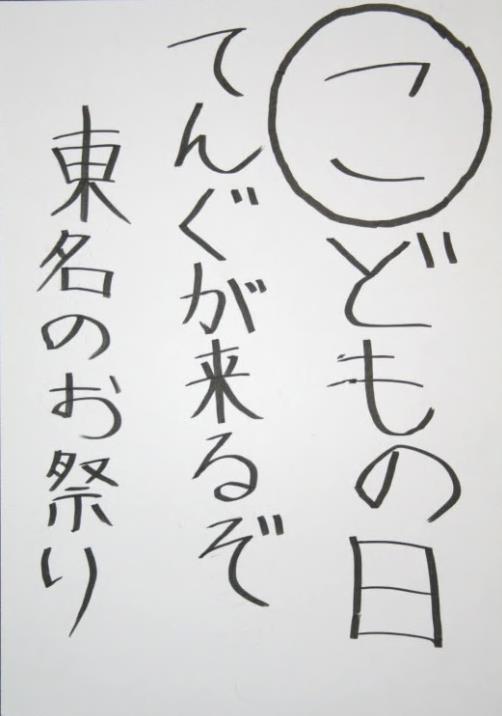 こどもの日
てんぐが来るぞ
東名のお祭り